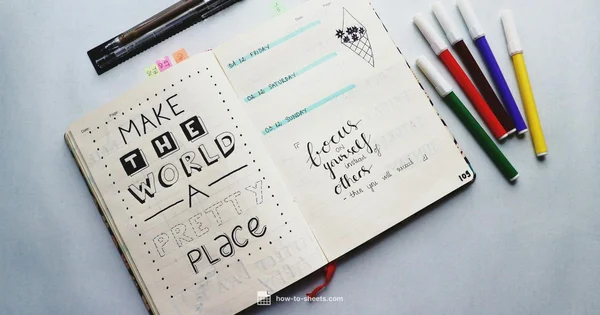 MAKE
THE
WORLD
A
PRETTY
PLACE
01.12 FRIDAY
02.12 SATURDAY
03.12 SUNDAY
focus
ON
yourself
instead of
others
- then you will succeed
103
how-to-sheets.com